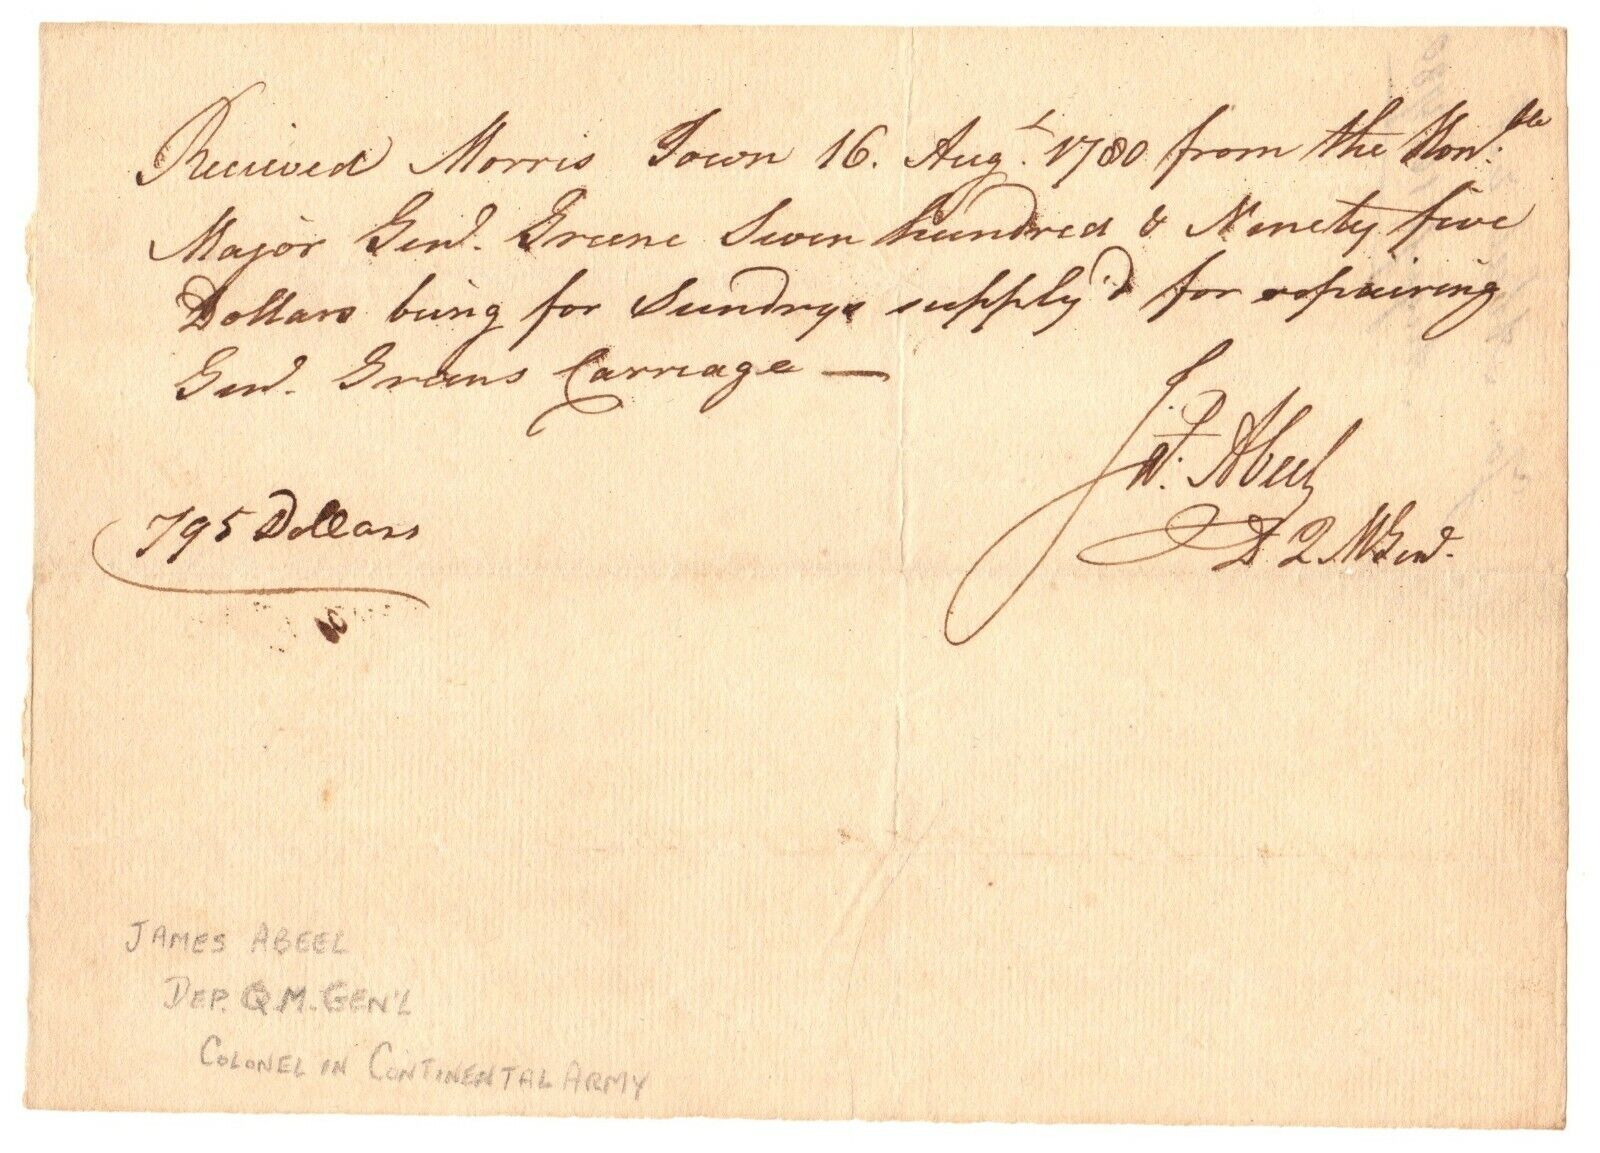 Received Morris Town 16. Augt. 1780 from the Honble.
Major Genl. Greene Seven hundred & Ninety five
Dollars being for Sundrys supply'd for repairing
Genl. Greens Carriage —
Js. Abeel
D Q M Genl.
795 Dollars
JAMES ABEEL
DEP. Q.M. GEN'L
COLONEL IN CONTINENTAL ARMY